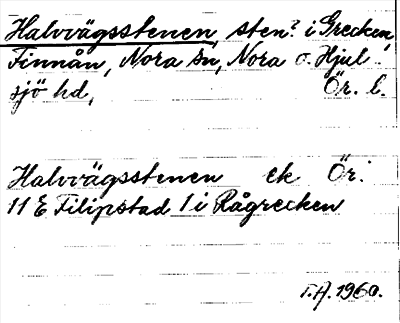 Halvvägsstenen, sten? i Grecken,
Finnån, Nora sn, Nora o. Hjul-
sjö hd, Ör. l.
Halvvägsstenen ek Ör.
11 E Filipstad 1 i Rågrecken
T.A. 1960.